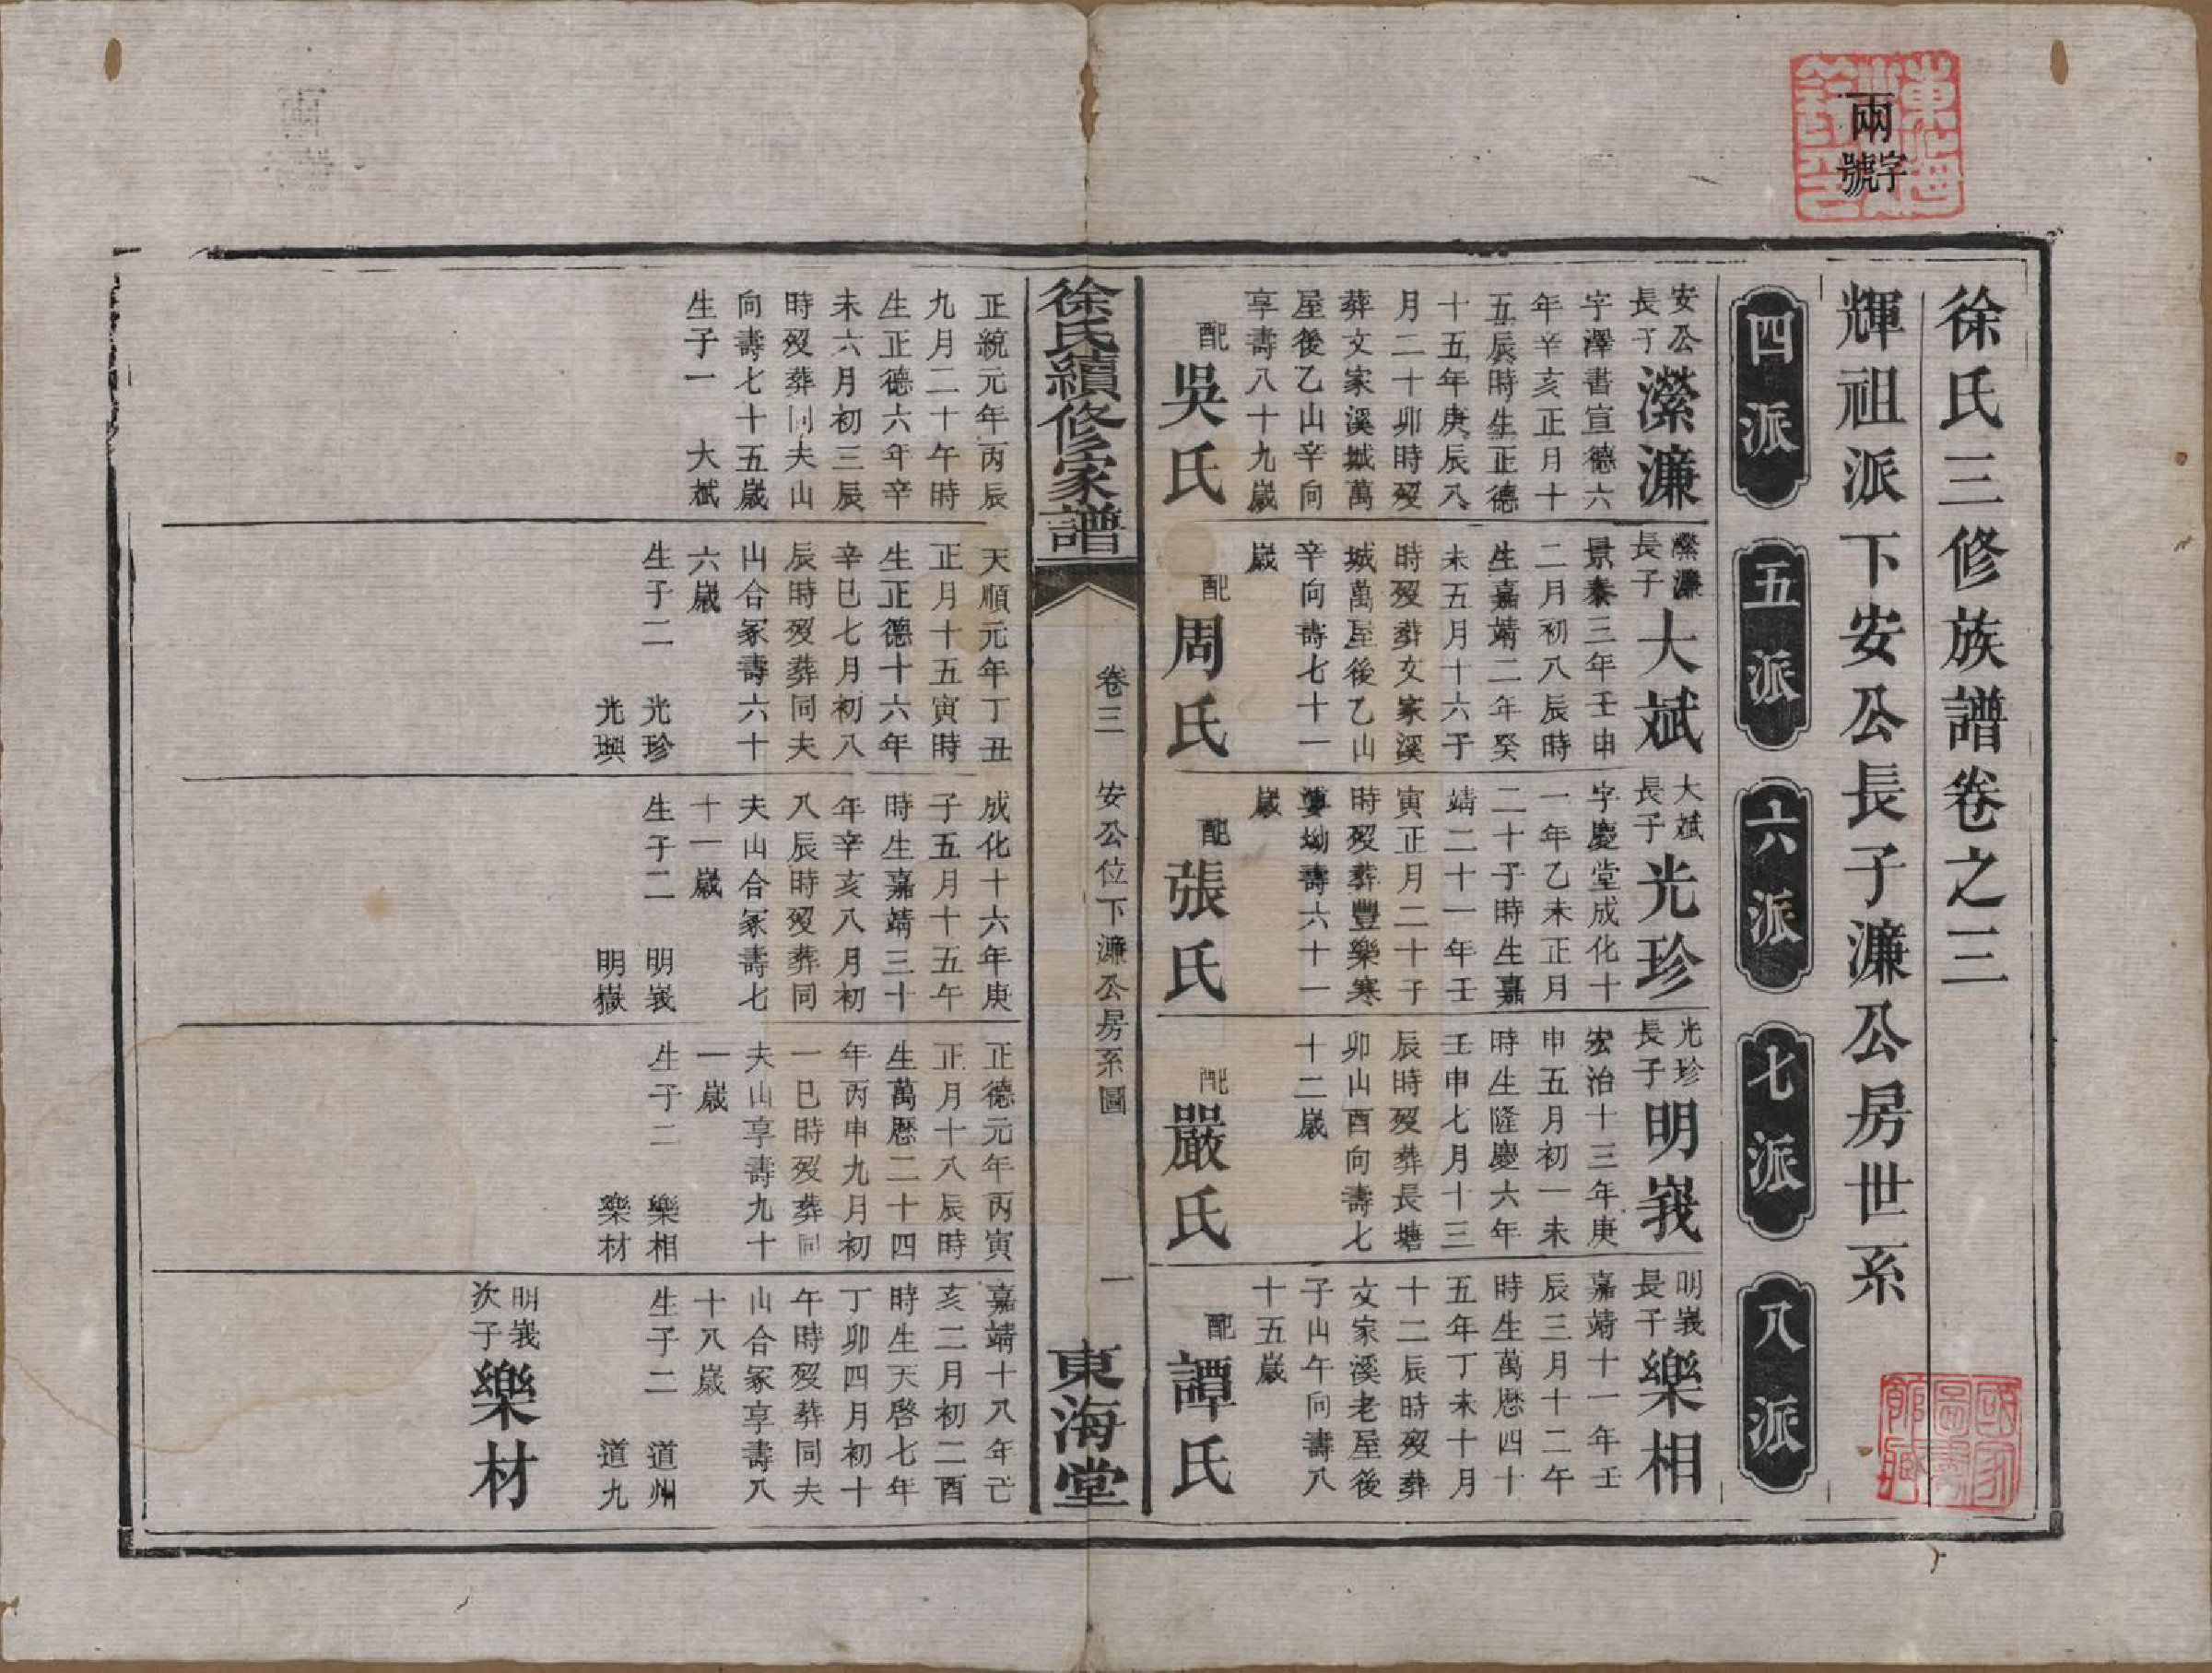 兩字號
徐氏三修族譜卷之三
輝祖派下安公長子濂公房世系
四派
五派
六派
七派
八派
安公長子 濚濂
字澤書宣德六
年辛亥正月十
五辰時生正德
十五年庚辰八
月二十卯時歿
葬文家溪城萬
屋後乙山辛向
享壽八十九歲
配吳氏
正統元年丙辰
九月二十午時
生正德六年辛
未六月初三辰
時歿葬同夫山
向壽七十五歲
生子一 大斌
濚濂長子 大斌
景泰三年壬申
二月初八辰時
生嘉靖二年癸
未五月十六子
時歿葬文家溪
城萬屋後乙山
辛向壽七十一
歲
配周氏
天順元年丁丑
正月十五寅時
生正德十六年
辛巳七月初八
辰時歿葬同夫
山合冢壽六十
六歲
生子二 光珍
光璵
大斌長子 光珍
字慶堂成化十
一年乙未正月
二十子時生嘉
靖二十一年壬
寅正月二十子
時歿葬豐樂寒
婆坳壽六十一
歲
配張氏
成化十六年庚
子五月十五午
時生嘉靖三十
年辛亥八月初
八辰時歿葬同
夫山合冢壽七
十一歲
生子二 明峩
明嶽
光珍長子 明峩
宏治十三年庚
申五月初一未
時生隆慶六年
壬申七月十三
辰時歿葬長塘
卯山酉向壽七
十二歲
配嚴氏
正德元年丙寅
正月十八辰時
生萬曆二十四
年丙申九月初
一巳時歿葬同
夫山享壽九十
一歲
生子二 樂相
樂材
明峩長子 樂相
嘉靖十一年壬
辰三月十二午
時生萬曆四十
五年丁未十月
十二辰時歿葬
文家溪老屋後
子山午向壽八
十五歲
配譚氏
嘉靖十八年亡
亥二月初二酉
時生天啓七年
丁卯四月初十
午時歿葬同夫
山合冢享壽八
十八歲
生子二 道州
道九
明峩次子 樂材
徐氏續修家譜
卷三
安公位下濂公房系圖
一
東海堂